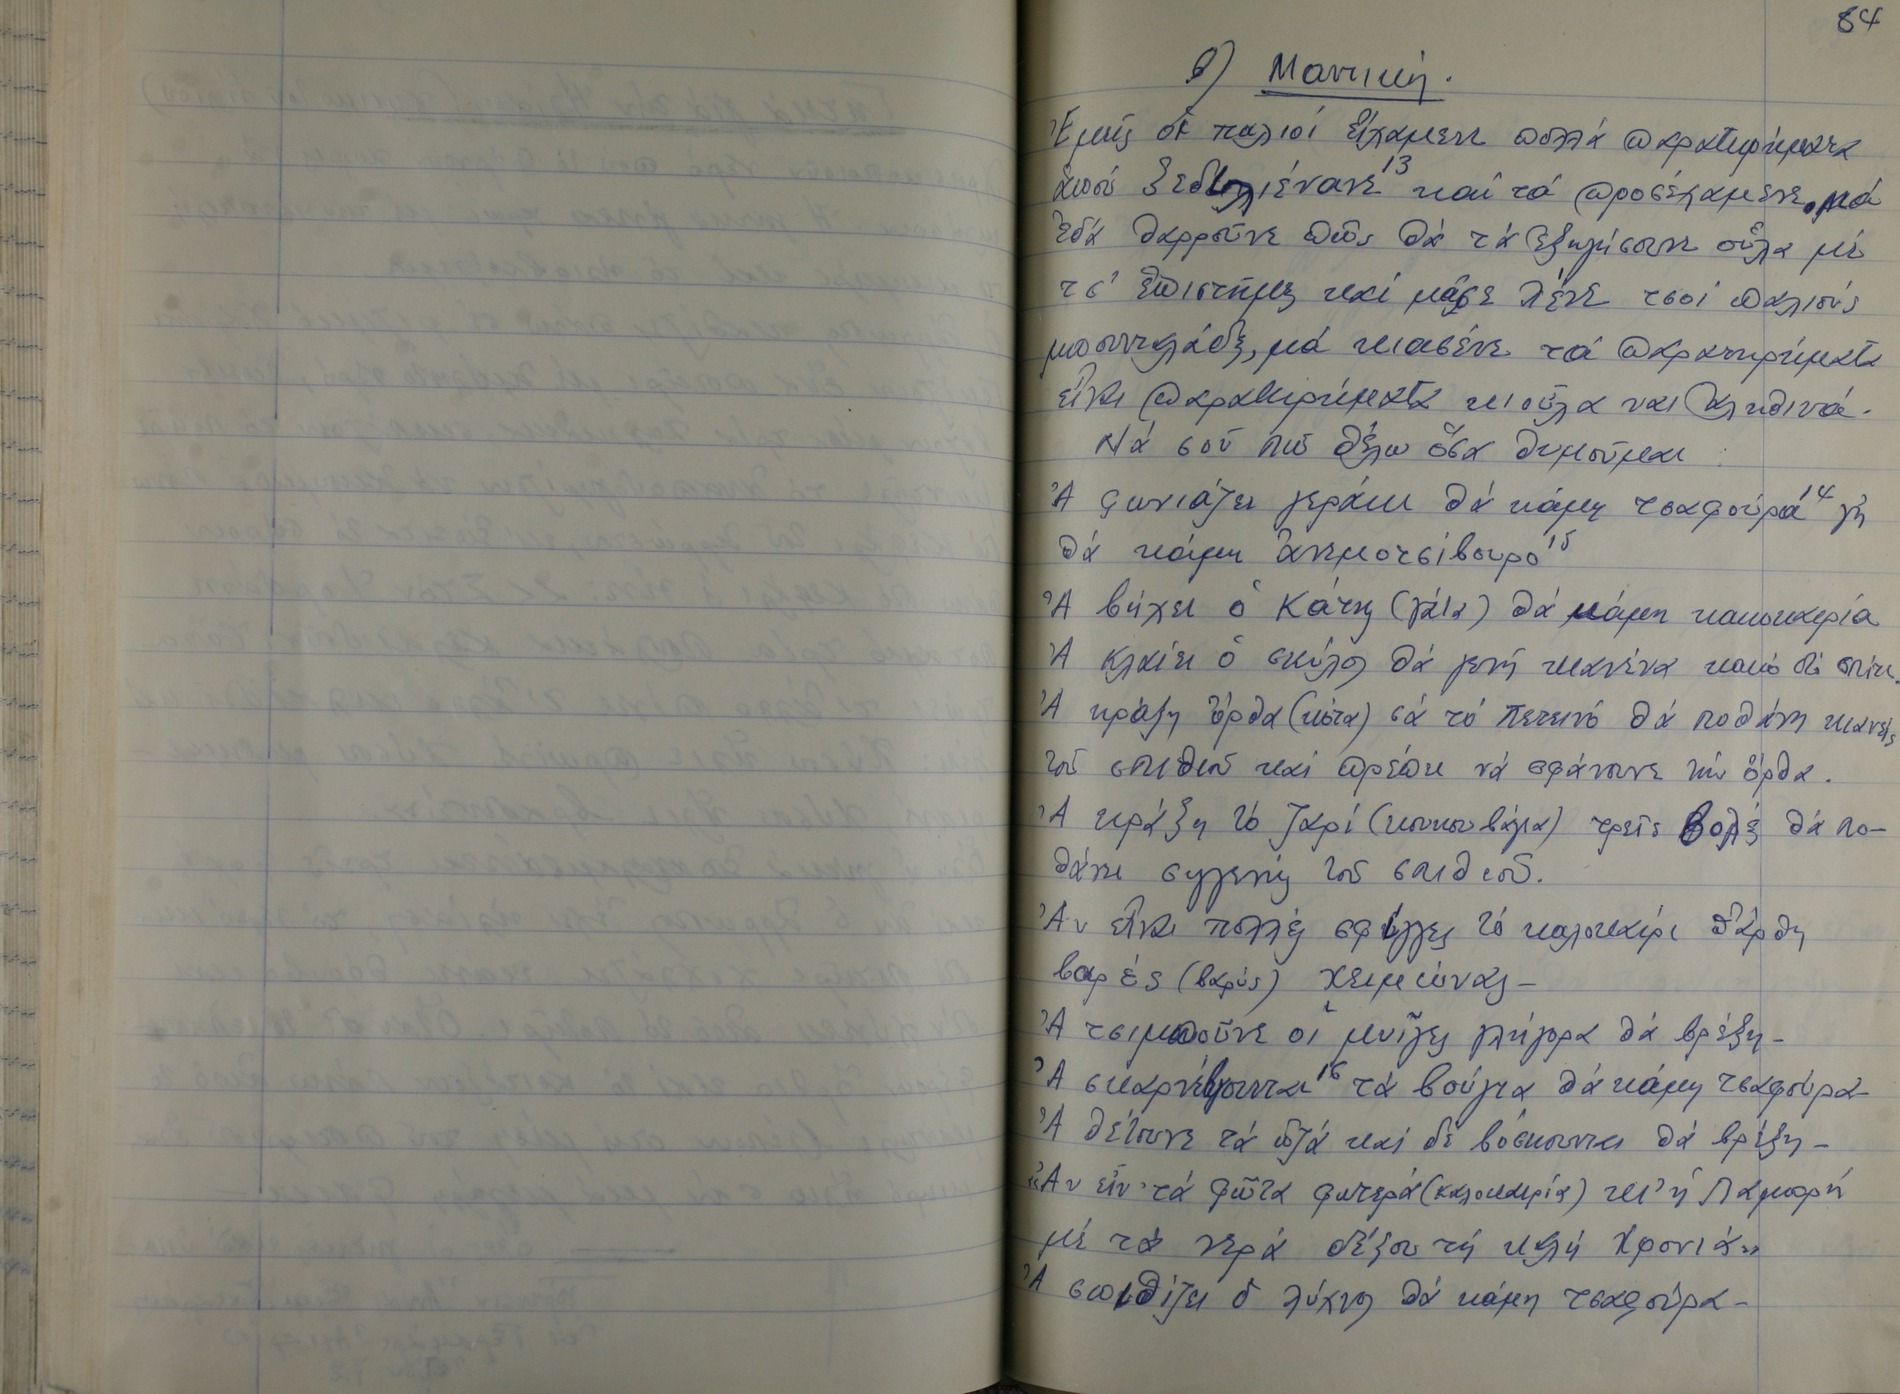 84
θ) Μαντική.
Ἐμεῖς οἱ παλιοί εἴχαμενε πολλά παρατηρήματα
ἁπού ξεδηλιένανε¹³ καί τά προσέχαμενε. μά
ἐδά θαρροῦνε πῶς θά τά ἐξηγήσουνε οὗλα μέ
τσ' ἐπιστήμες καί μᾶσε λένε τσοί παλιούς
μποσυνταλάδες, μά κιασένε τά παρατηρήματα
εἶναι παρατηρήματα κι οὗλα ναι ἀληθινά.
Νά σοῦ πῶ θέλω ὅσα θυμοῦμαι
Ἀ φωνιάζει γεράκι θά κάμη τσαφούρα¹⁴ γή
θά κάμη ἀνεμοτσίβουρο¹⁵
Ἀ βήχει ὁ Κάτης (γάτα) θά κάμη κακοκαιρία
Ἀ κλαίει ὁ σκύλος θά γενῆ κιανένα κακό στό σπίτι.
Ἀ κράξη ὄρθα (κότα) σά τό πετεινό θά ποθάνη κιανείς
τοῦ σπιθιοῦ καί πρέπει νά σφάξουνε τήν ὄρθα.
Ἀ κράξη τό ζαρί (κουκουβάγια) τρεῖς βολές θά πο-
θάνει συγγενής τοῦ σπιθιοῦ.
Ἄν εἶναι πολλές σφίγγες τό καλοκαίρι θἄρθη
βαρές (βαρύς) χειμώνας-
Ἀ τσιμποῦνε οἱ μυῖγες γλήγορα θά βρέξη-
Ἀ σκαρνέβγουνται¹⁶ τά βούγια θά κάμη τσαφούρα-
Ἀ θέτουνε τά ὠζά καί δέ βόσκουνται θά βρέξη-
«Ἄν εἶν' τά Φῶτα φωτερά (καλοκαιρία) κι' ἡ Λαμπρή
μέ τά νερά δέξου τή καλή χρονιά»
Ἀ σπιθίζει ὁ λύχνος θά κάμη τσαφούρα-